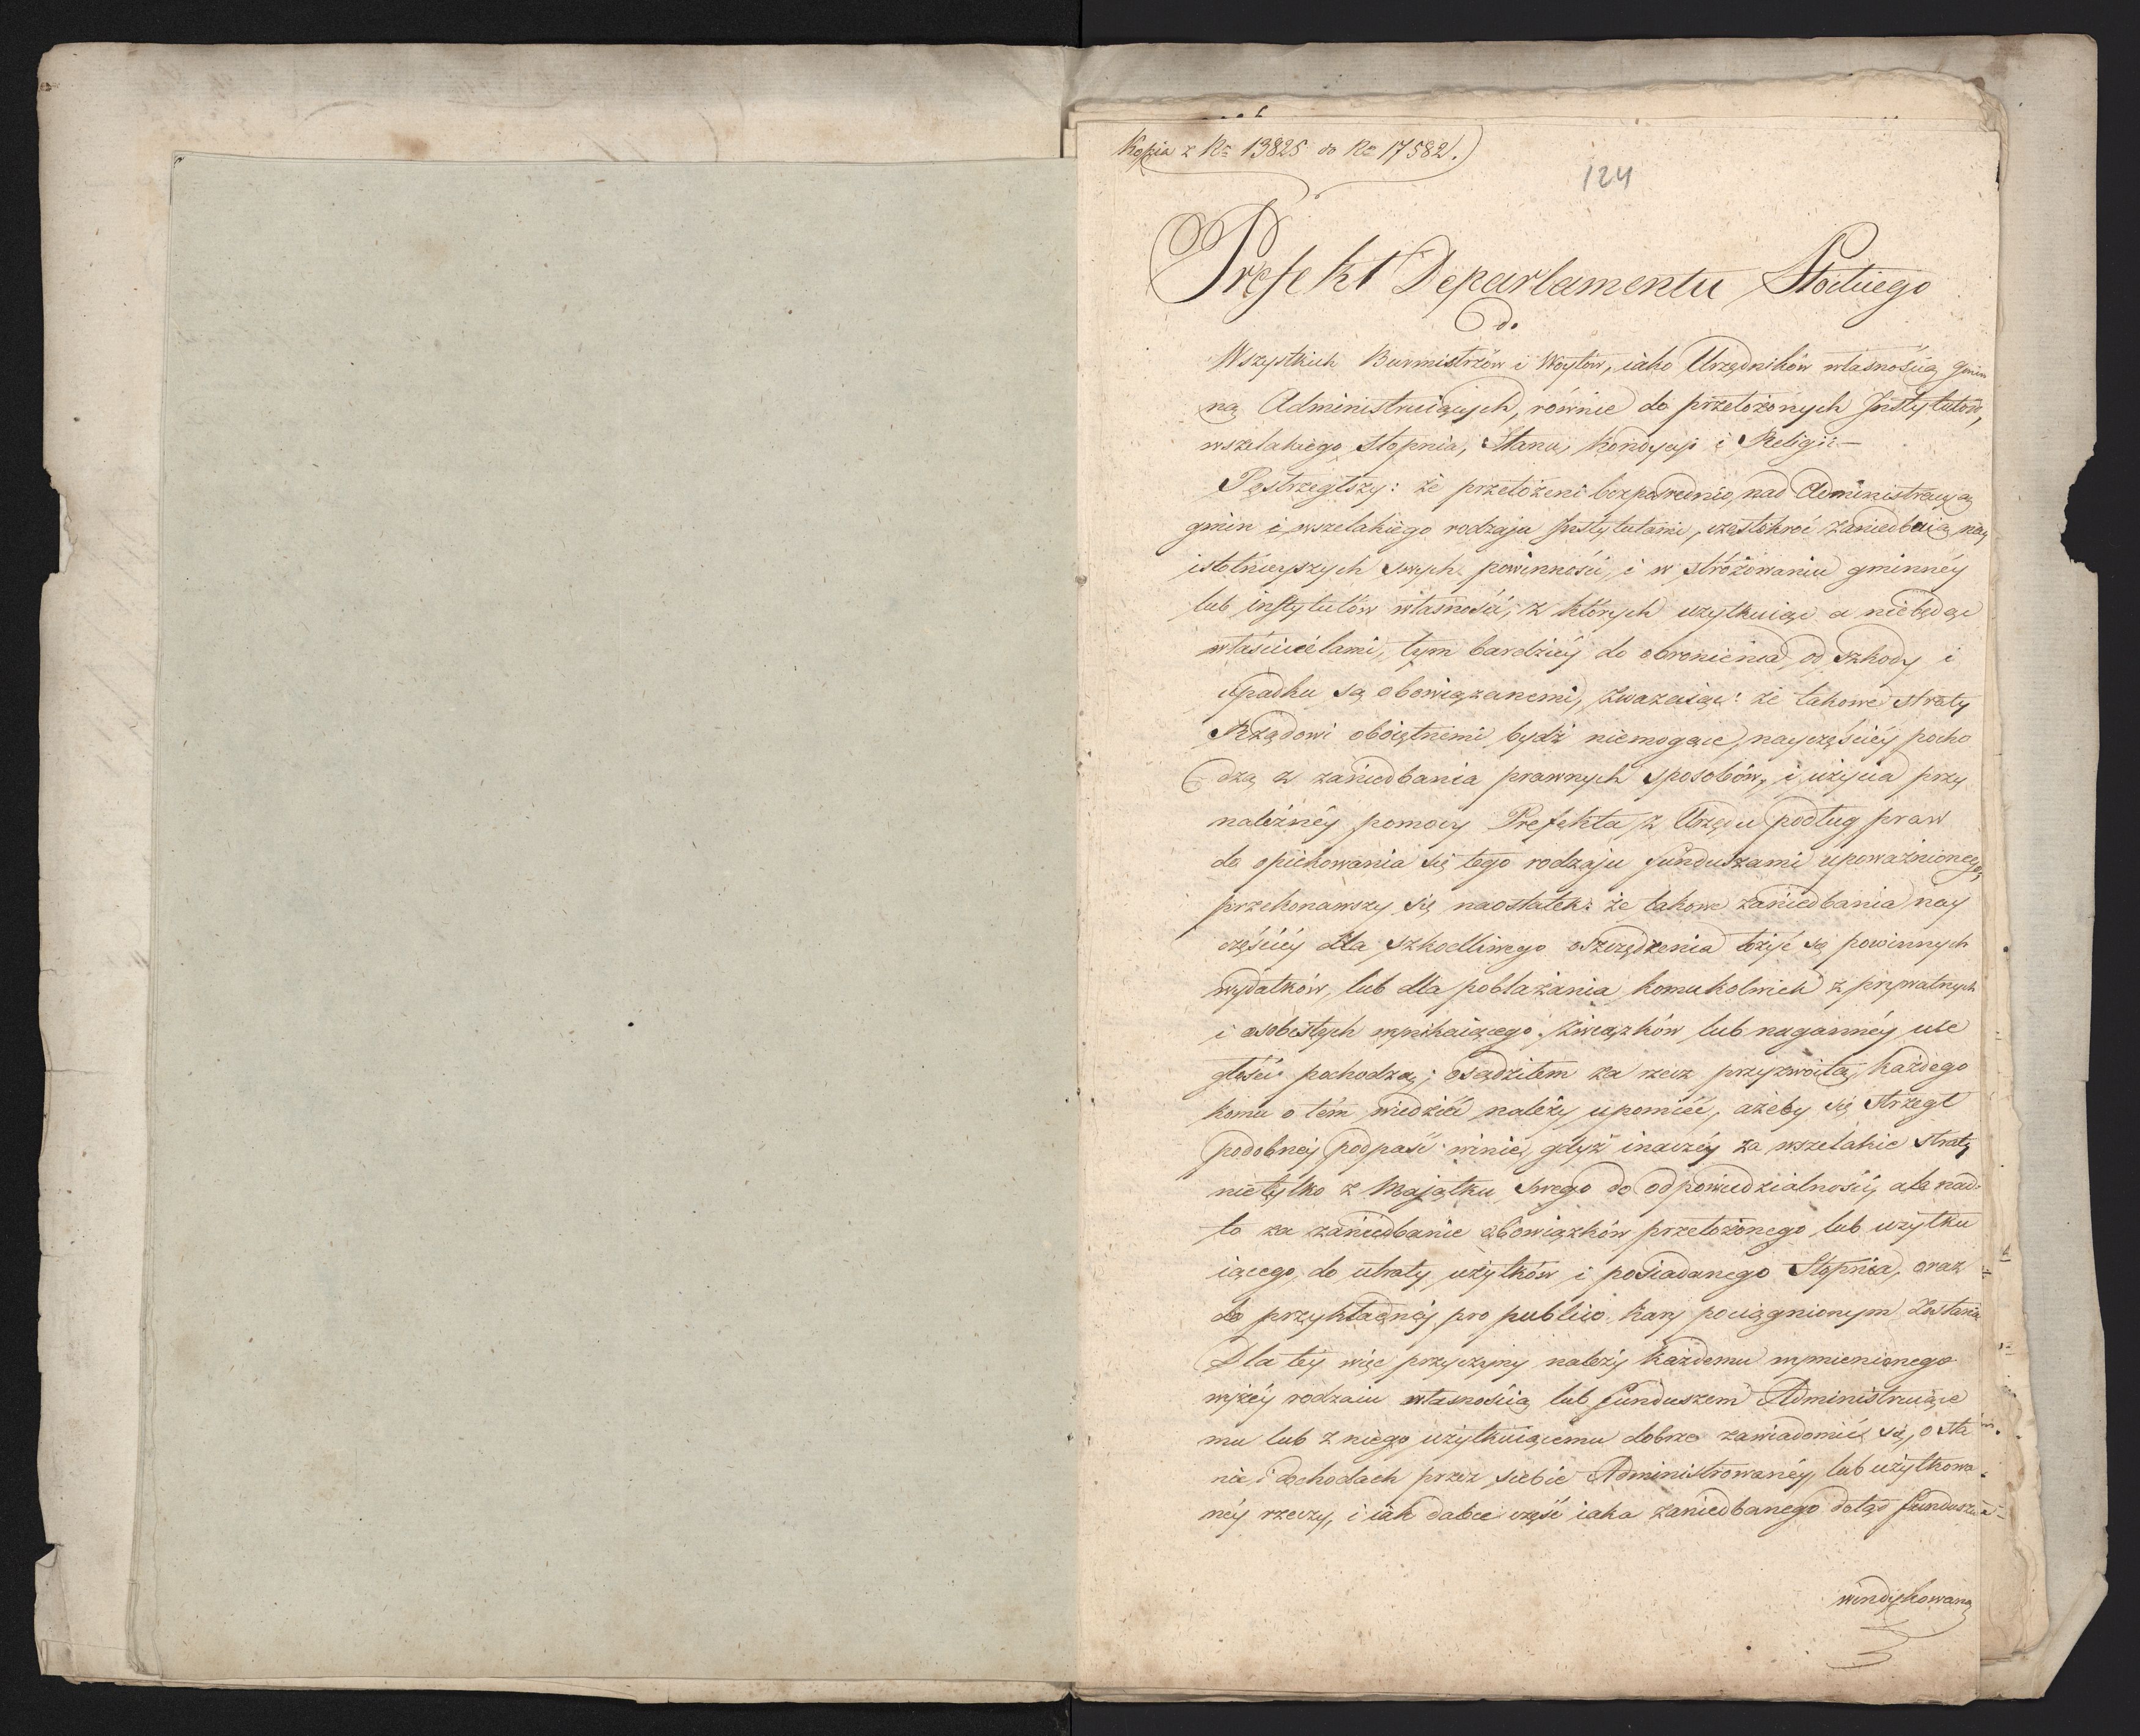 Kopia z Nr 13825 do Nr 17582.
124
Prefekt Departamentu Płockiego
do.
Wszystkich Burmistrzów i Woytów, iako Urzędników własnością gmin
ną Administruiących, równie do przełożonych Instytutów,
wszelakiego Stopnia, Stanu, Kondycyi i Religii —
Postrzegłszy: że przełożeni bezpośrednio, nad Administracyą
gmin i wszelakiego rodzaju Instytutami, częstokroć zaniedbuią nay
istotnieyszych swych powinności, i w stróżowaniu gminnéy
lub instytutów własności, z których użytkuiąc a niebędąc
właścicielami, tym bardziéy do obronienia od szkody i
upadku są obowiązanemi, zważaiąc: że takowe straty
Rządowi oboiętnemi bydź niemogące, nayczęściéy pocho
dzą z zaniedbania prawnych sposobów, i użycia przy
należnéy pomocy Prefekta z Urzędu podług praw
do opiekowania się tego rodzaju funduszami upoważnionego,
przekonawszy się naostatek: że takowe zaniedbania nay
częściéy dla szkodliwego oszczędzenia łożyć się powinnych
wydatków, lub dla pobłażania komukolwiek z prywatnych
i osobistych wynikaiącego związków lub nagannéy ule
głości pochodzą; osądziłem za rzecz przyzwoitą, każdego
komu o tém wiedzieć należy upomnieć, ażeby się strzegł
podobnéy podpaść winie, gdyż inaczéy za wszelakie straty
nietylko z Majątku swego do odpowiedzialności, ale nad-
to za zaniedbanie obowiązków przełożonego lub użytku
iącego, do utraty użytków i posiadanego Stopnia, oraz
do przykładnéy pro publico kary pociągnionym zostanie
Dla téy więc przyczyny należy każdemu wymienionego
wyżéy rodzaiu własnością lub funduszem Administruiące
mu lub z niego użytkuiącemu dobrze zawiadomić się, o sta
nie i dochodach przez siebie Administrowanéy, lub użytkowa
néy rzeczy, i iak dalece część iaka zaniedbanego dotąd funduszu
windykowaną